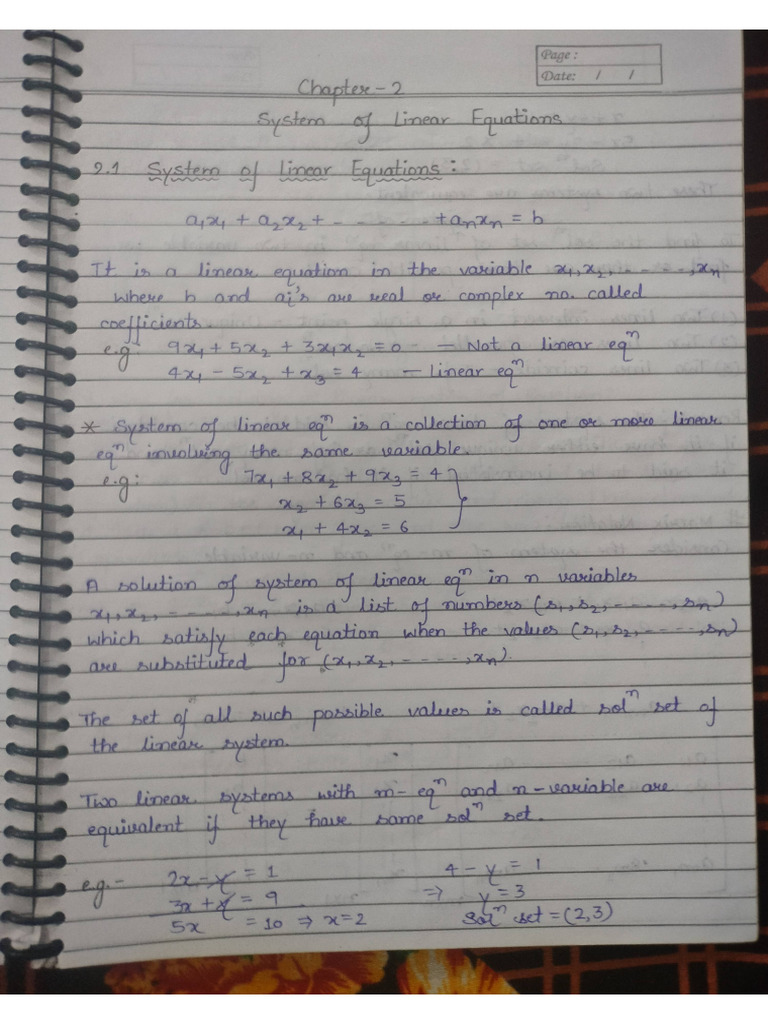 Page :
Date: / /
Chapter - 2
System of Linear Equations
2.1 System of linear Equations :
a₁x₁ + a₂x₂ + - - - - - - + aₙxₙ = b
It is a linear equation in the variable x₁, x₂, - - - - -, xₙ
where b and ai's are real or complex no. called
coefficients.
e.g: 9x₁ + 5x₂ + 3x₁x₂ = 0 — Not a linear eqⁿ
4x₁ - 5x₂ + x₃ = 4 — linear eqⁿ
* System of linear eqⁿ is a collection of one or more linear
eqⁿ involving the same variable.
e.g: 7x₁ + 8x₂ + 9x₃ = 4
x₂ + 6x₃ = 5
x₁ + 4x₂ = 6
A solution of system of linear eqⁿ in n variables
x₁, x₂, - - - - - -, xₙ is a list of numbers (s₁, s₂, - - - - -, sₙ)
which satisfy each equation when the values (s₁, s₂, - - - - -, sₙ)
are substituted for (x₁, x₂, - - - - -, xₙ).
The set of all such possible values is called solⁿ set of
the linear system.
Two linear systems with m- eqⁿ and n-variable are
equivalent if they have same solⁿ set.
e.g.- 2x - y = 1 4 - y = 1
3x + y = 9 ⇒ y = 3
5x = 10 ⇒ x = 2 solⁿ set = (2,3)